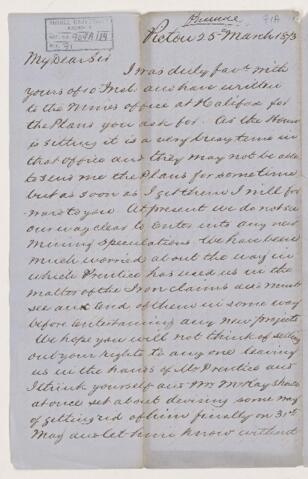 McGILL UNIVERSITY
ARCHIVES
ACC. NO. 909A/19
REF. 71
71A
Pictou 25th March 1873
My Dear Sir
I was duly favd with
yours of 10 Inst and have written
to the Mines office at Halifax for
the Plans you ask for. As the House
is sitting it is a very busy time in
that office and they may not be able
to send me the Plans for some time
but as soon as I get them I will for
ward to you. At present we do not see
our way clear to enter into any new
Mining Speculations. We have been
much worried about the way in
which Prentice has used us in the
matter of the Iron claims and must
see an end of them in some way
before entertaining any new projects
We hope you will not think of selling
out your rights to any one leaving
us in the hands of Mr Prentice and
I think yourself and Mr McKay should
at once set about devising some way
of getting rid of him finally on 31st
May and let him know without